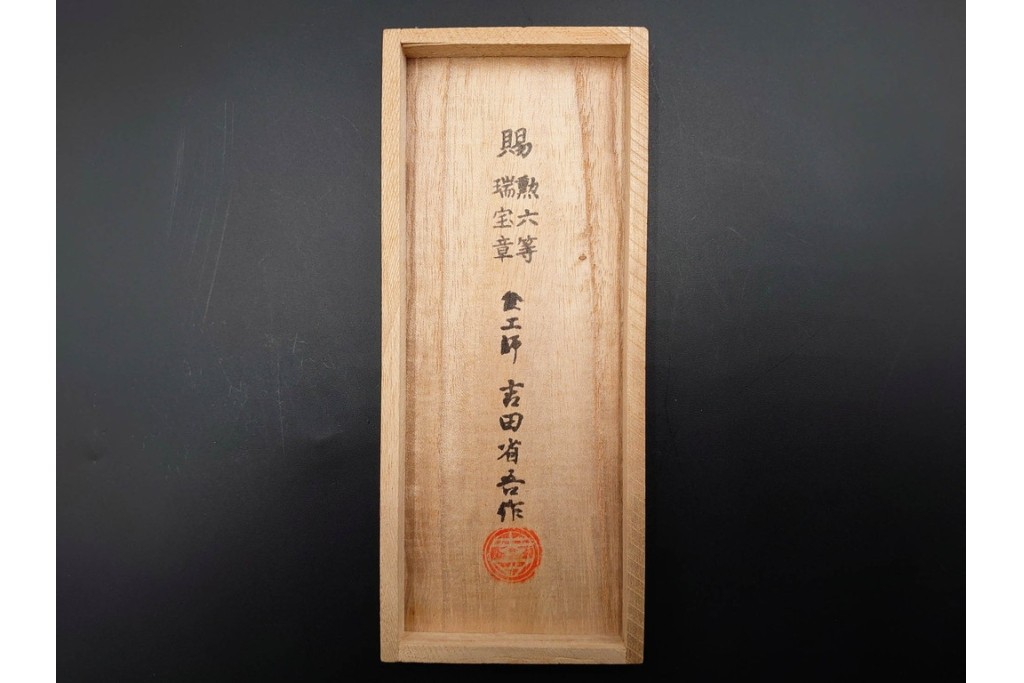 賜
勲六等
瑞宝章
金工師 吉田省吾作